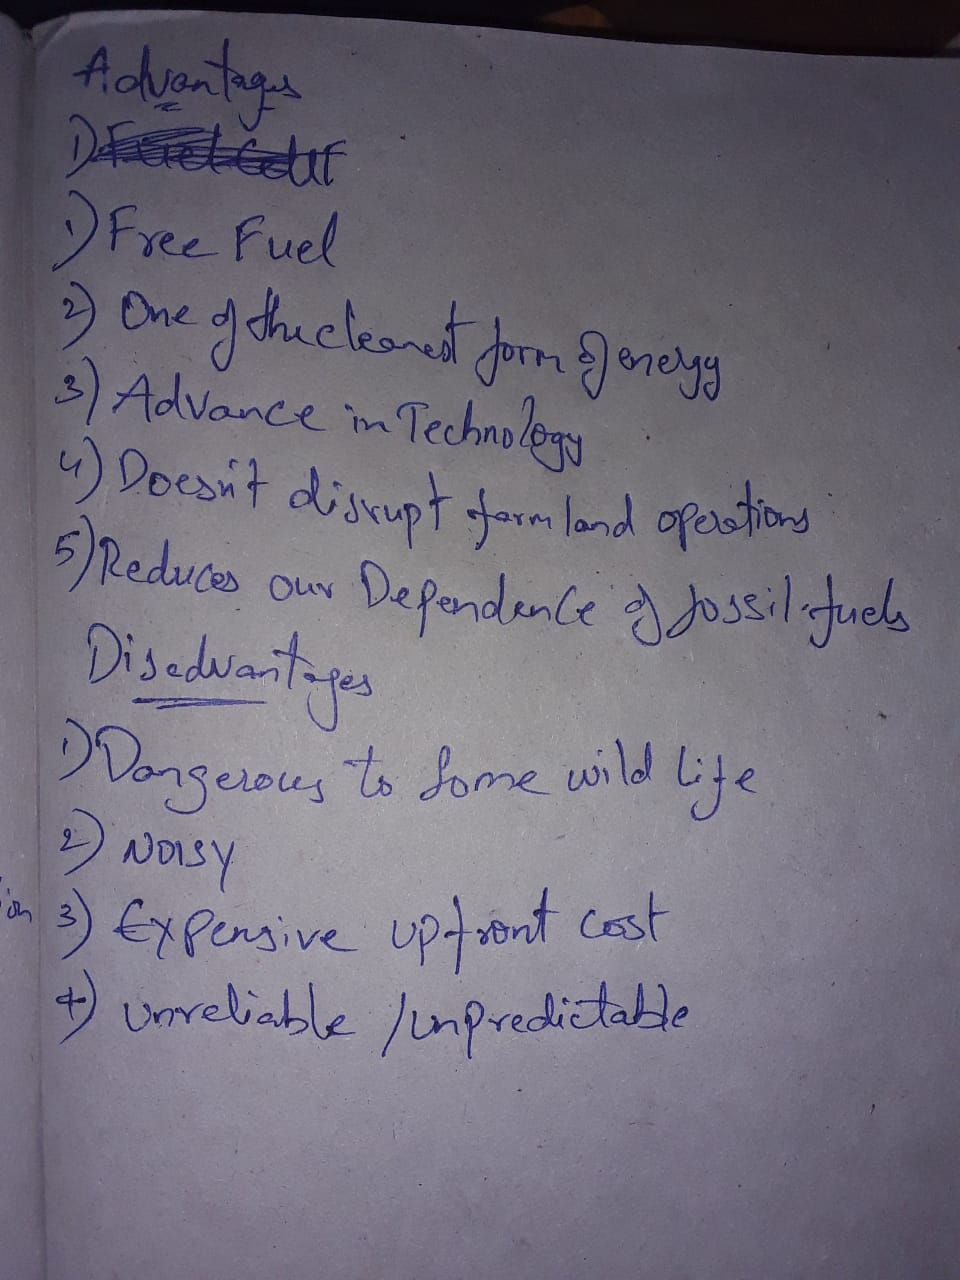 Advantages
1)
1) Free Fuel
2) One of the cleanest form of energy
3) Advance in Technology
4) Doesn't disrupt farm land operations
5) Reduces our Dependence of fossil fuels
Disadvantages
1) Dangerous to some wild life
2) NOISY
3) Expensive upfront cost
4) unreliable / unpredictable